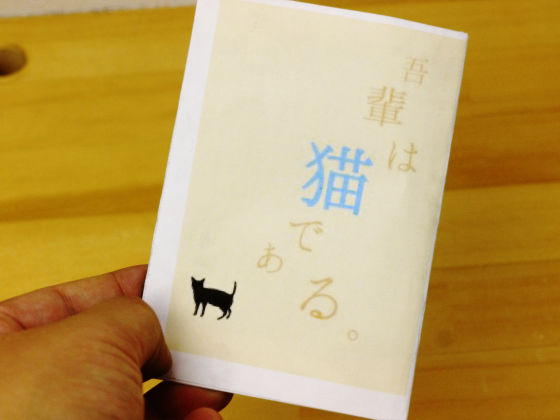 吾輩は猫である。